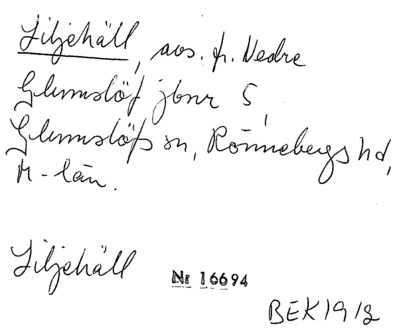 Liljehäll, avs. fr. Nedre
Glumslöf jbnr 5,
Glumslöfs sn, Rönnebergs hd,
M-län.
Liljehäll
Nr 16694
BEK 1912